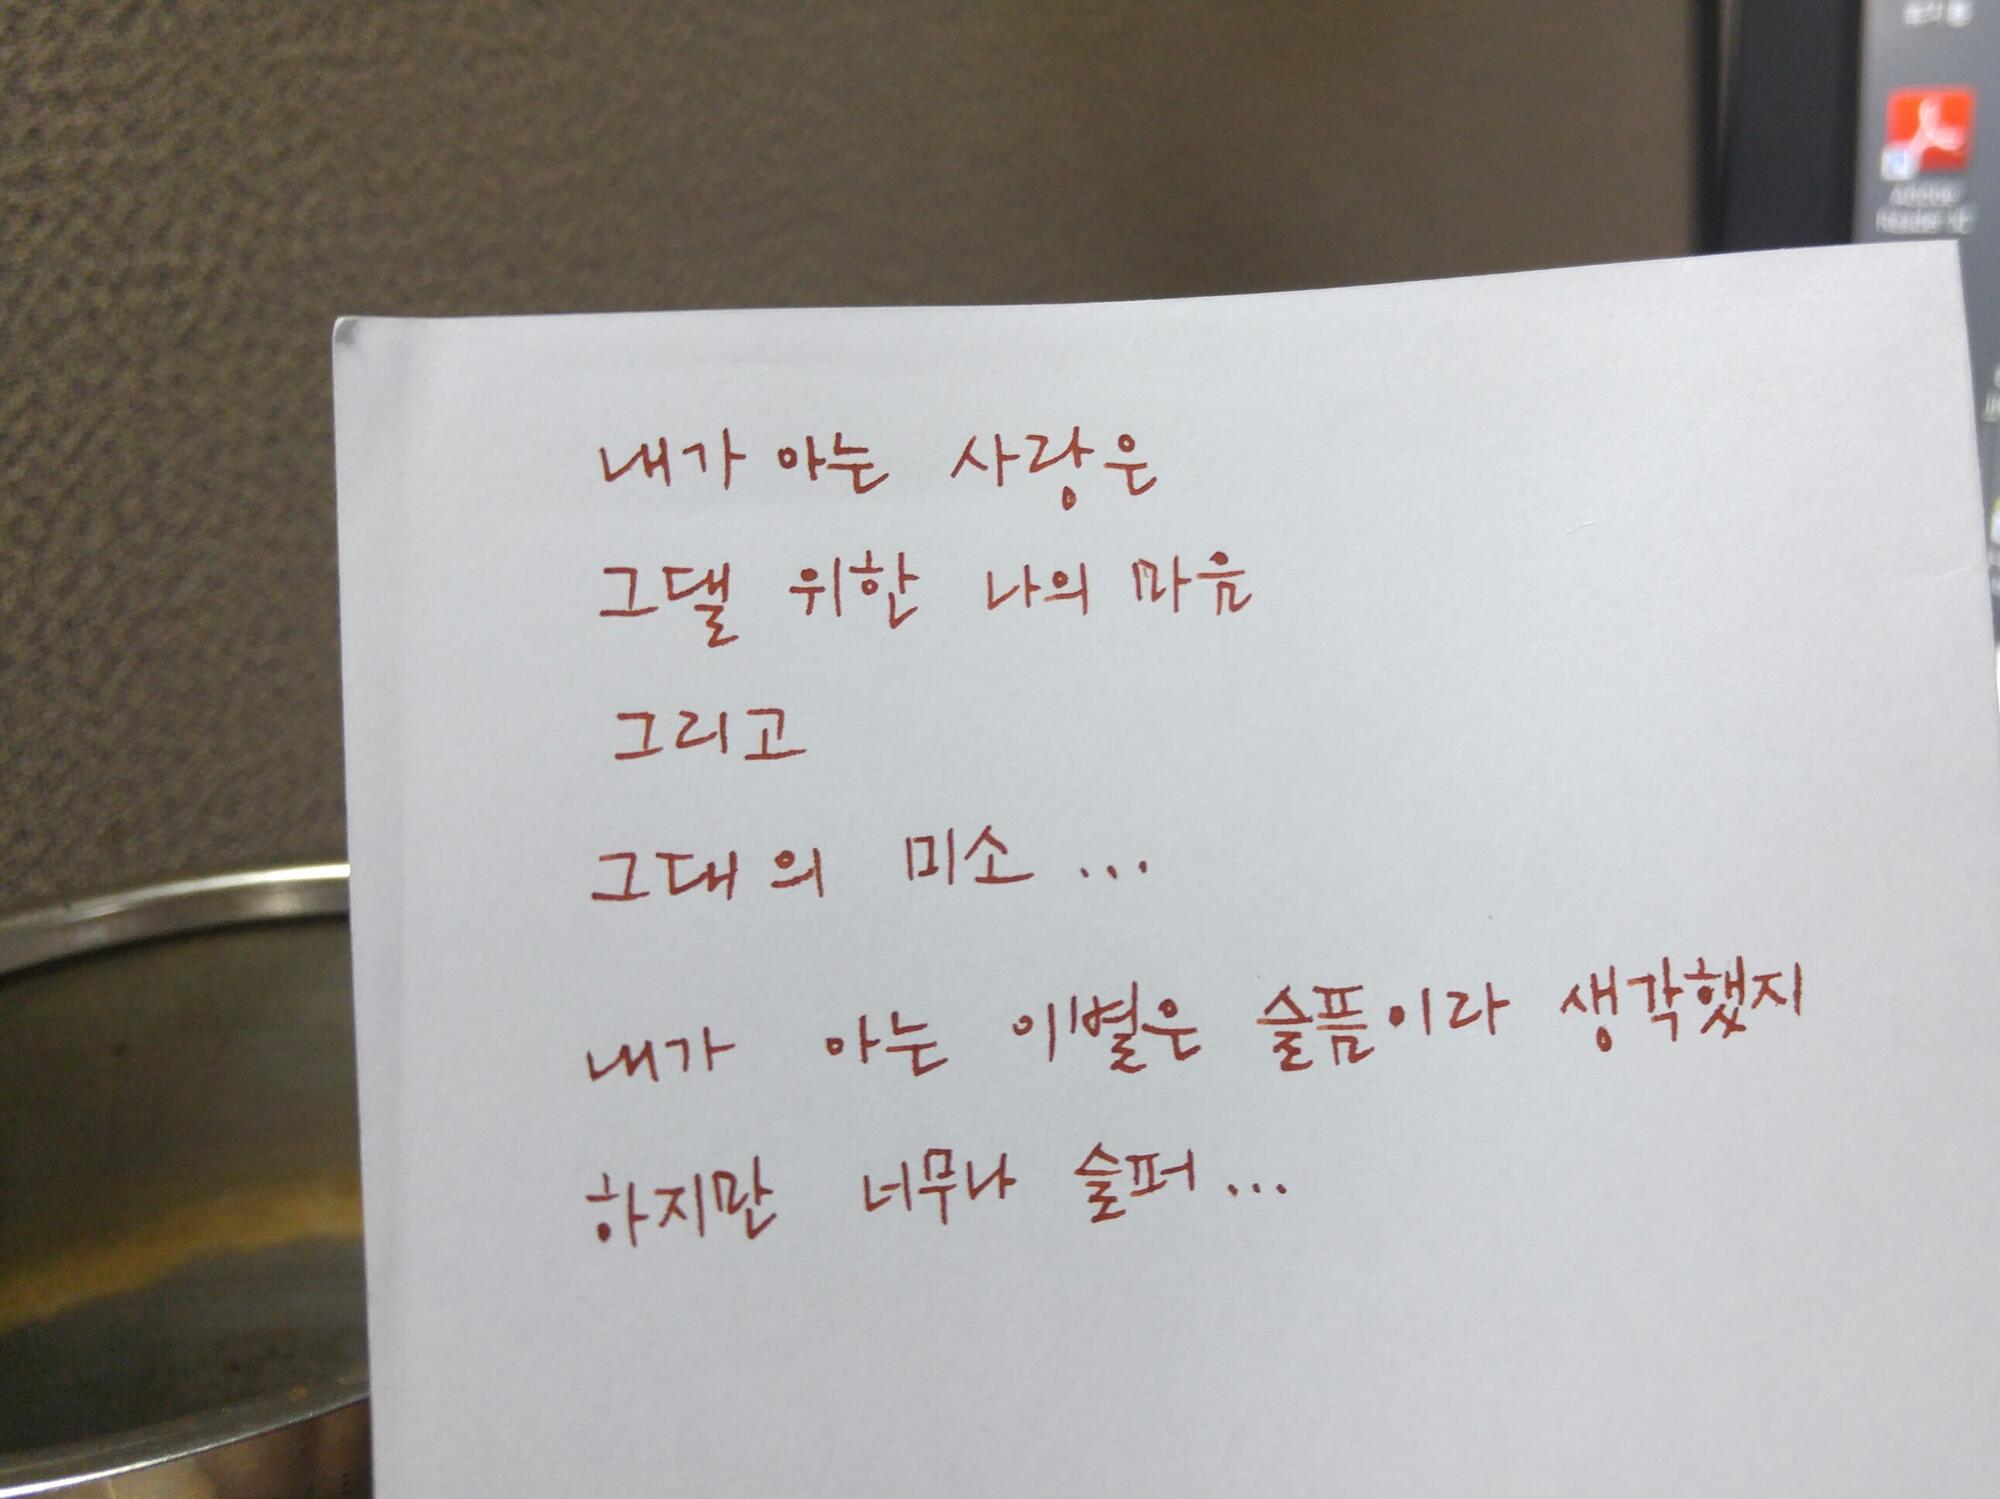 내가 아는 사랑은
그댈 위한 나의 마음
그리고
그대의 미소...
내가 아는 이별은 슬픔이라 생각했지
하지만 너무나 슬퍼...
Adobe
Reader XI